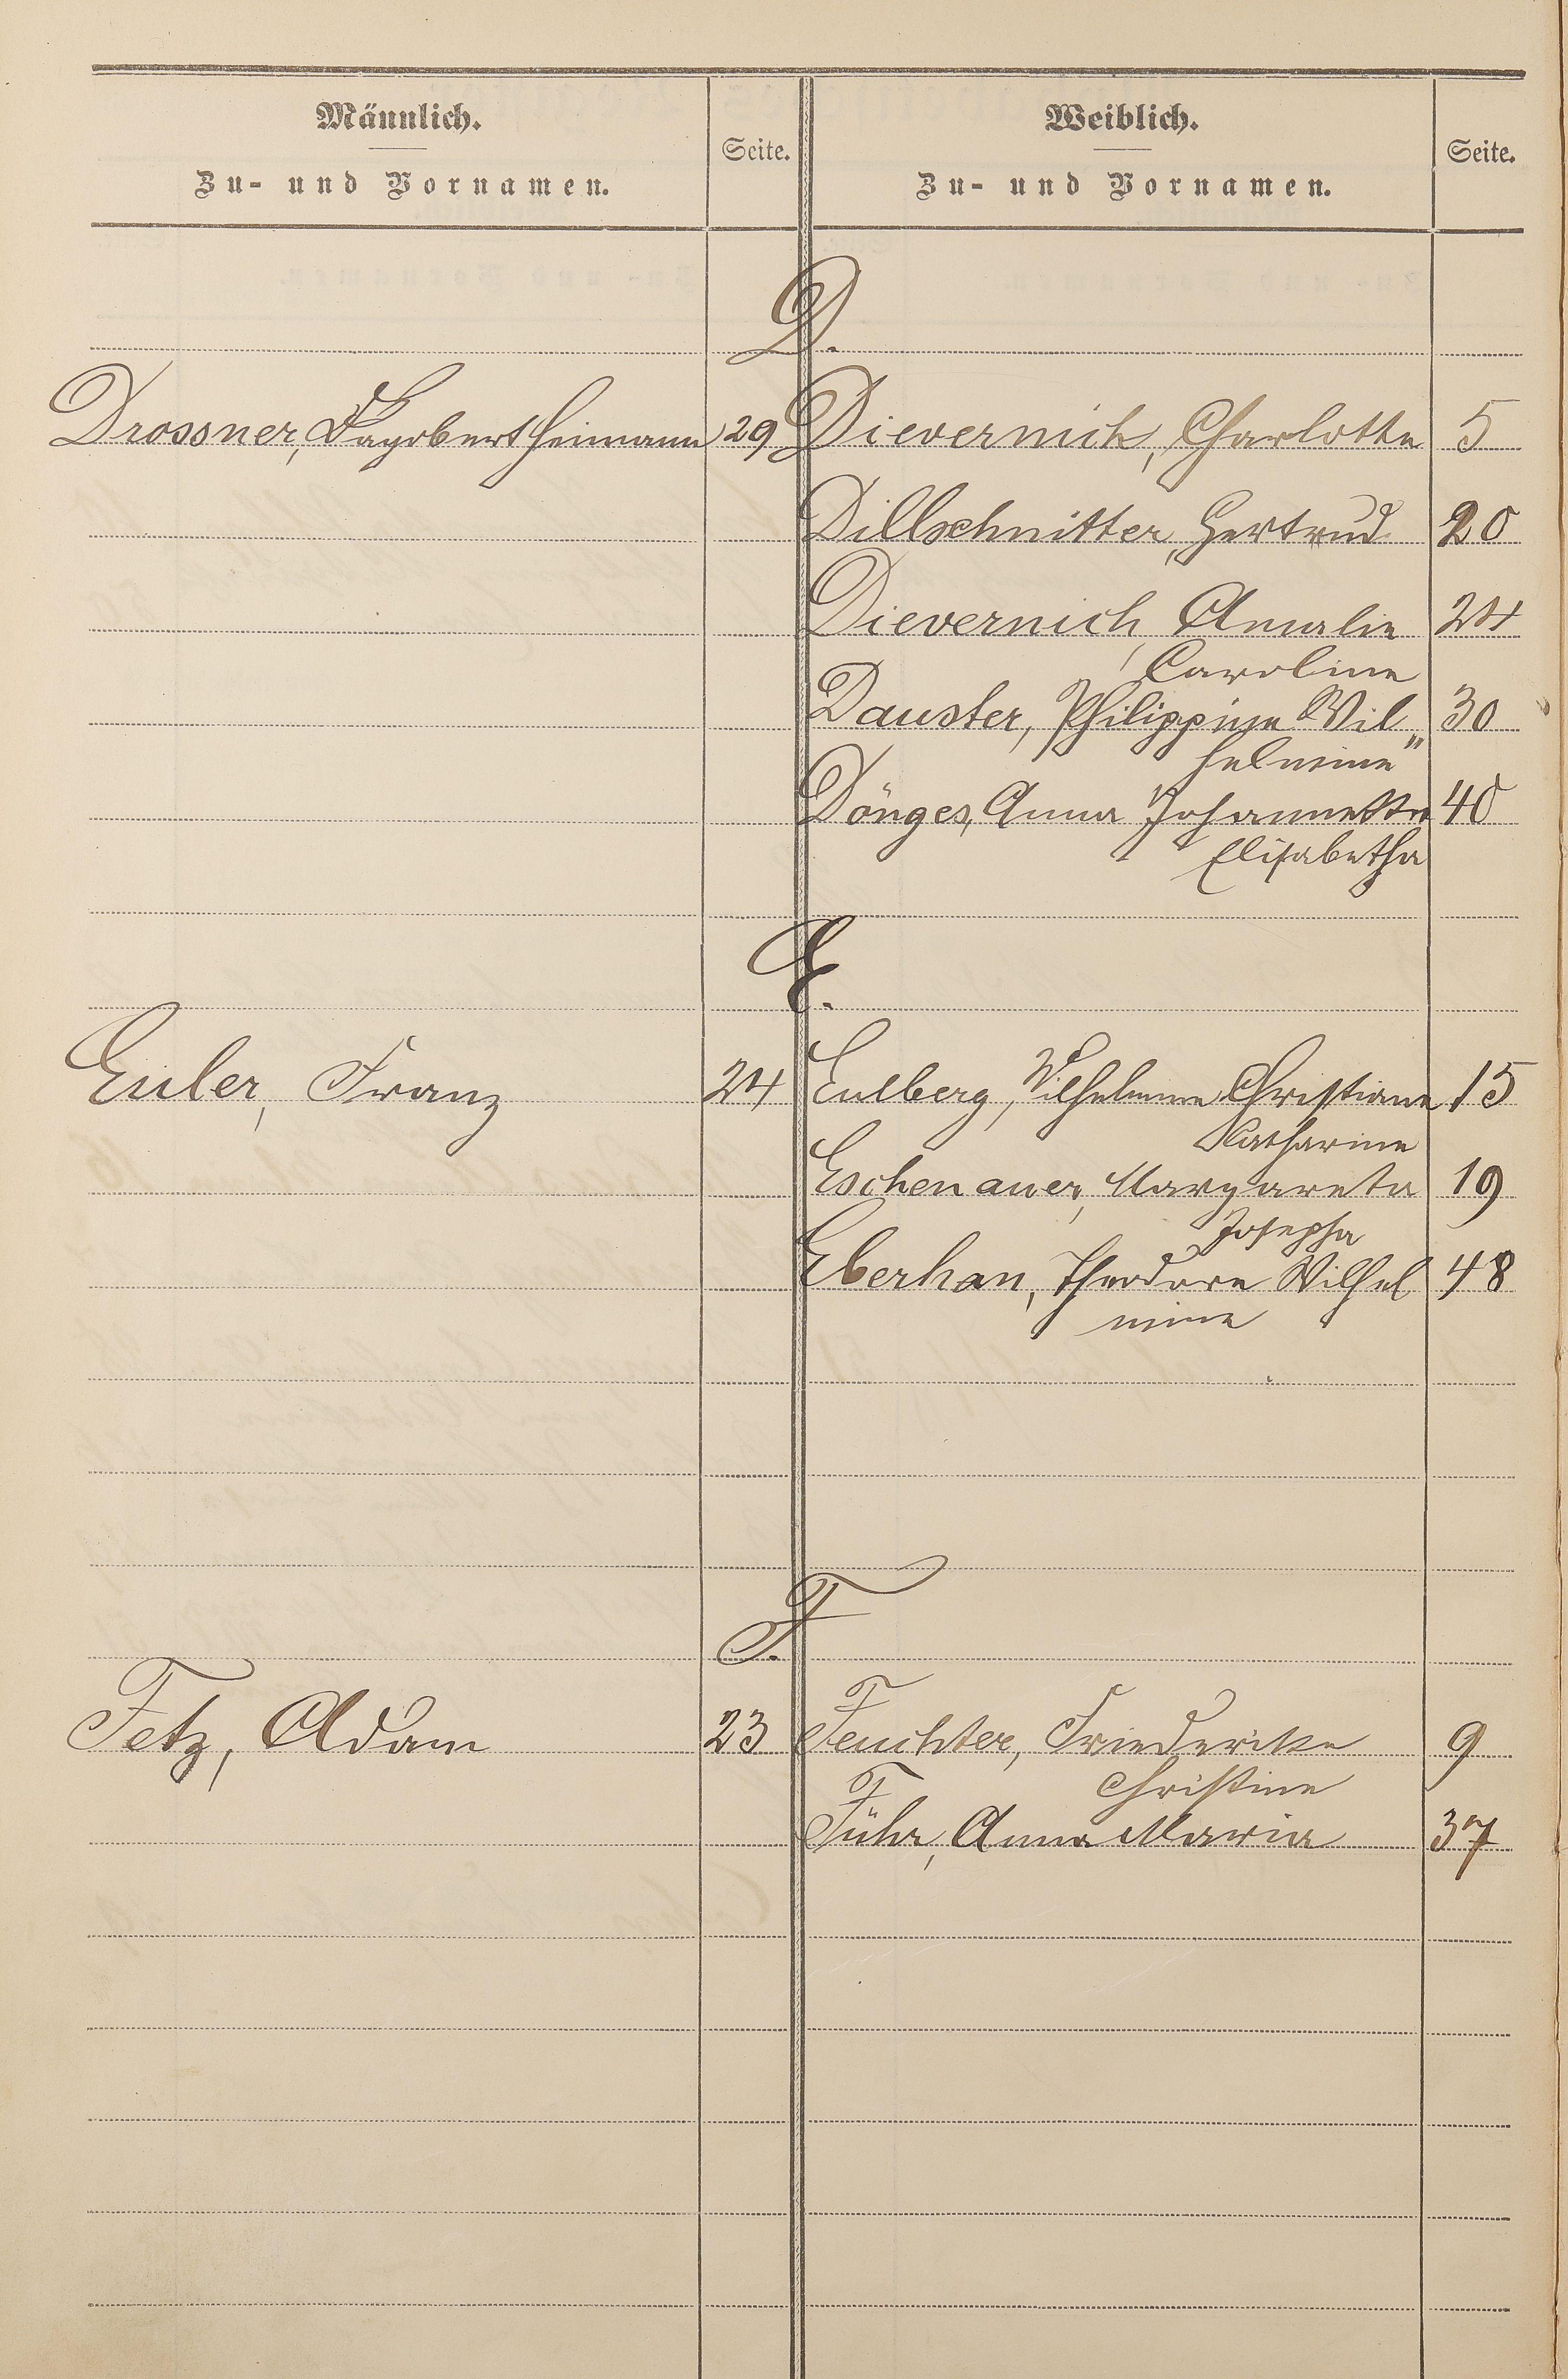 Männlich.
Zu- und Vornamen.
Seite.
Weiblich.
Zu- und Vornamen.
Seite.
D.
Drossner, Dagobert Heimann 29 Dievernich, Charlotte 5
Dillschnitter, Gertrud 20
Dievernich, Amalie 24
Caroline
Dauster, Philippine Wil„ 30
helmine"
Dönges, Anna Johannette 40
Elisabetha
E.
Euler, Franz 24 Eulberg, Wilhelmine Christiane 15
Katharine
Eschenauer, Margareta 19
Josepha
Eberhan, Theodore Wilhel 48
mine
F.
Fetz, Adam 23 Feuchter, Friederike 9
Christine
Führ, Anna Maria 37